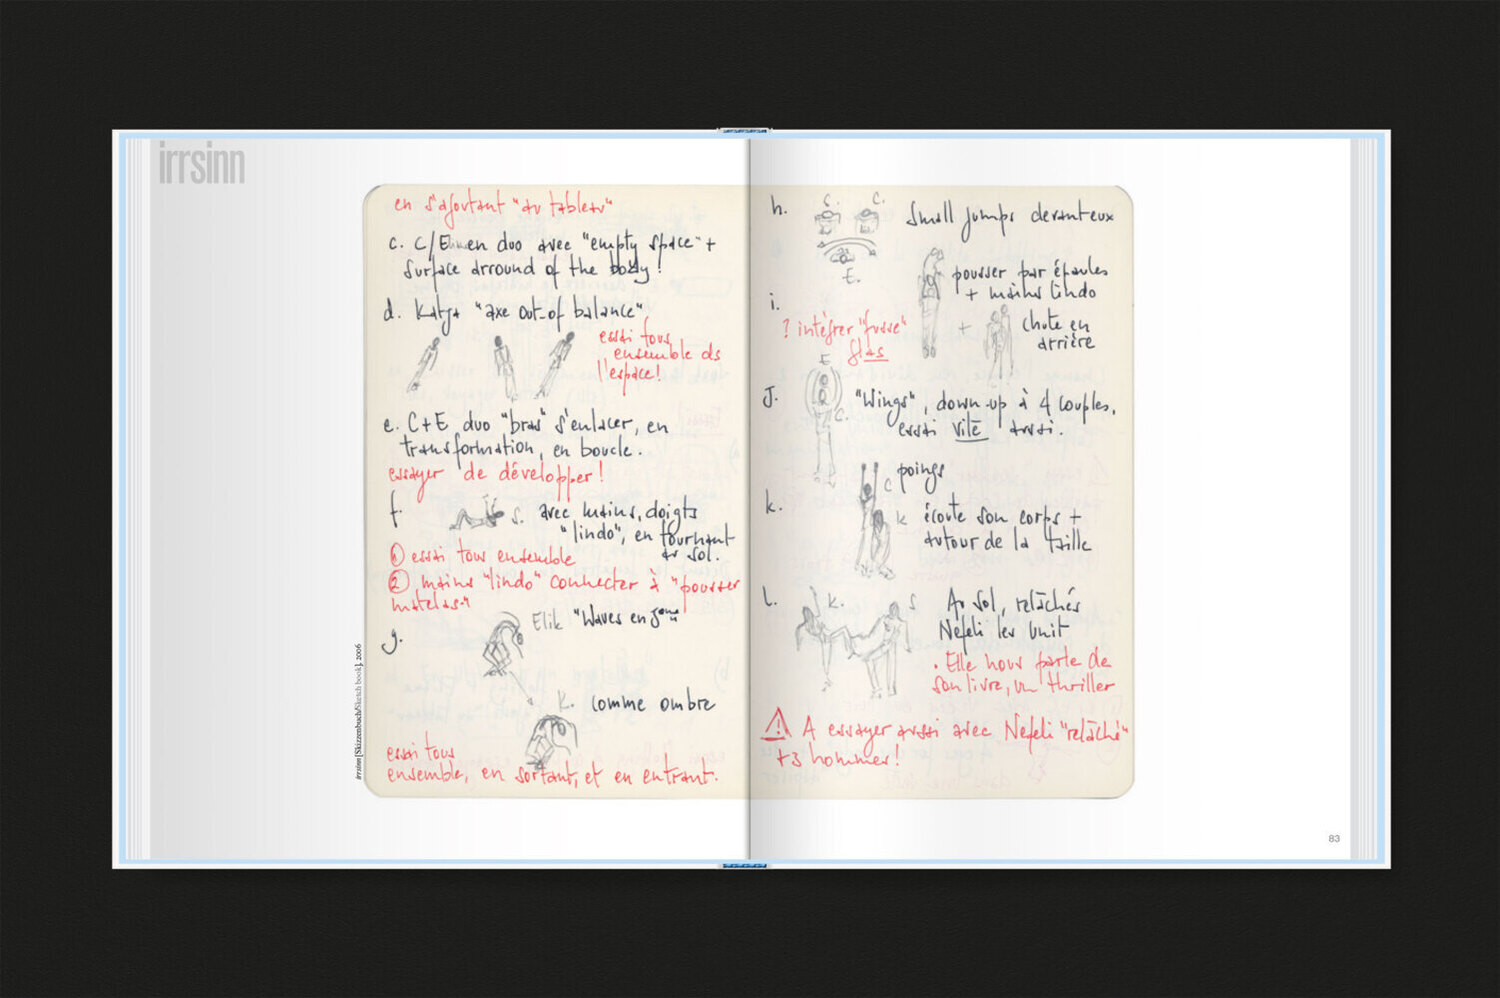 irrsinn
en s'ajoutant "au tableau"
c. C/E en duo avec "empty space" +
surface arround of the body!
d. Katja "axe out-of balance"
essai tous
ensemble ds
l'espace!
e. C+E duo "bras" s'enlacer, en
transformation, en boucle.
essayer de développer!
f.
S.
avec mains, doigts
"lindo", en tournant
au sol.
1 essai tous ensemble
2 mains "lindo" connecter à "pousser
matelas"
g.
Elik "Waves en
K. comme ombre
essai tous
ensemble, en sortant, et en entrant.
irrsinn [Skizzenbuch/Sketch book], 2006
h.
S. C.
E.
Small jumps devant eux
i.
pousser par épaules
+ mains lindo
? intégrer "russe"
+
chute en
arrière
J.
E
C.
"Wings", down-up à 4 couples,
essai vite aussi.
k.
C
K
poings
écoute son corps +
autour de la taille
l.
K.
S
Au sol, relâchés
Nefeli les unit
. Elle nous parle de
son livre, un thriller
! A essayer aussi avec Nefeli "relâché"
+3 hommes!
83